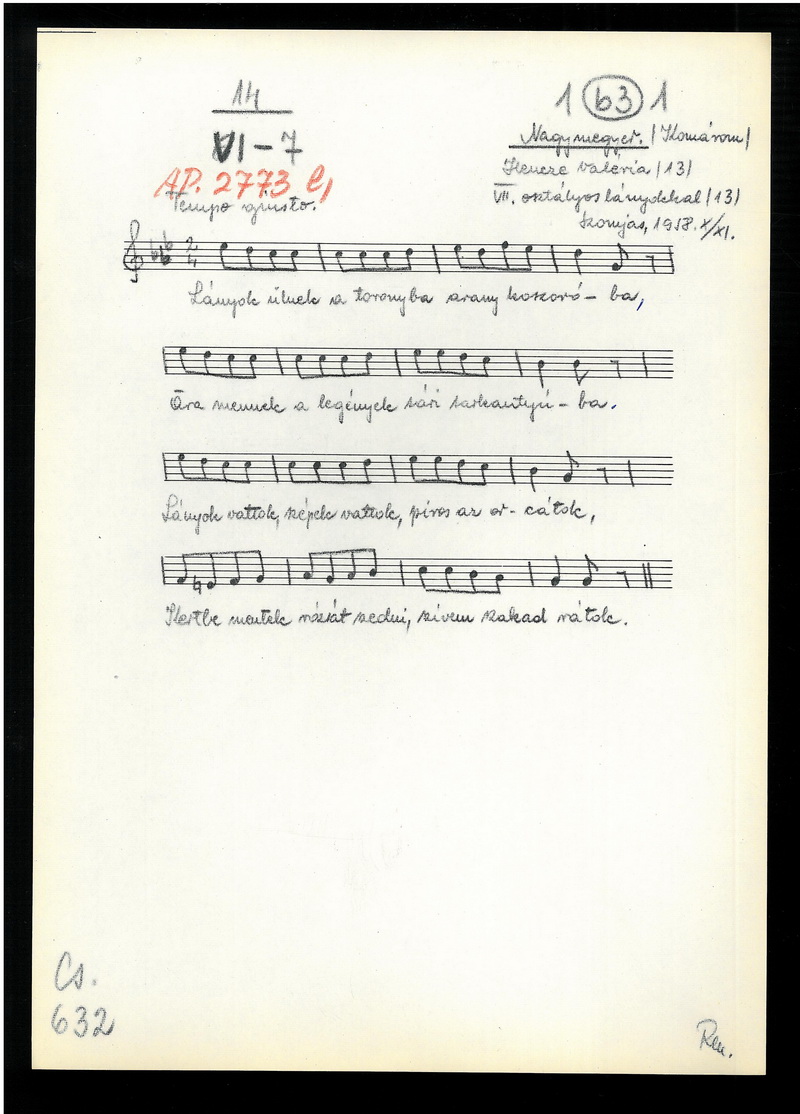 14
VI-7
AP. 2773 e,
Tempo giusto.
1 (b3) 1
Nagymegyer. (Komárom)
Kencze Valéria (13)
VII. osztályos lányokkal (13)
Ikonjás, 1958. X/XI.
2/4
Lányok ülnek a toronyba arany koszoró- ba,
Óra mennek a legények sári sarkantyú- ba.
Lányok vattok, szépek vattok, piros az or- cátok,
Kertbe mentek rózsát szedni, szivem szakad rátok.
Cs.
632
Ren.